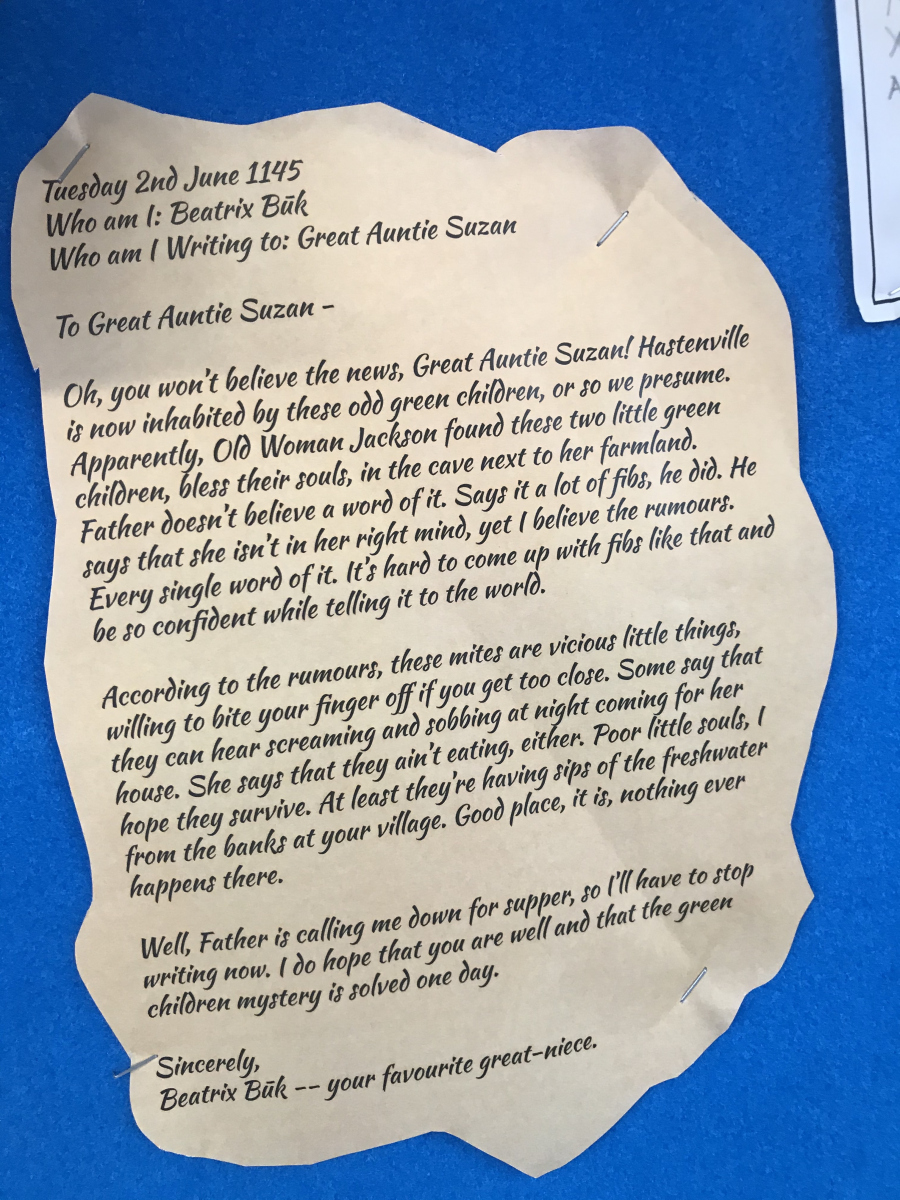 Tuesday 2nd June 1145
Who am I: Beatrix Būk
Who am I Writing to: Great Auntie Suzan
To Great Auntie Suzan –
Oh, you won't believe the news, Great Auntie Suzan! Hastenville
is now inhabited by these odd green children, or so we presume.
Apparently, Old Woman Jackson found these two little green
children, bless their souls, in the cave next to her farmland.
Father doesn't believe a word of it. Says it a lot of fibs, he did. He
says that she isn't in her right mind, yet I believe the rumours.
Every single word of it. It's hard to come up with fibs like that and
be so confident while telling it to the world.
According to the rumours, these mites are vicious little things,
willing to bite your finger off if you get too close. Some say that
they can hear screaming and sobbing at night coming for her
house. She says that they ain't eating, either. Poor little souls, I
hope they survive. At least they're having sips of the freshwater
from the banks at your village. Good place, it is, nothing ever
happens there.
Well, Father is calling me down for supper, so I'll have to stop
writing now. I do hope that you are well and that the green
children mystery is solved one day.
Sincerely,
Beatrix Būk -- your favourite great-niece.